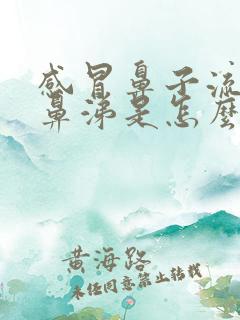 感冒鼻子流
鼻涕是怎麼
黄海路
未经同意禁止转载